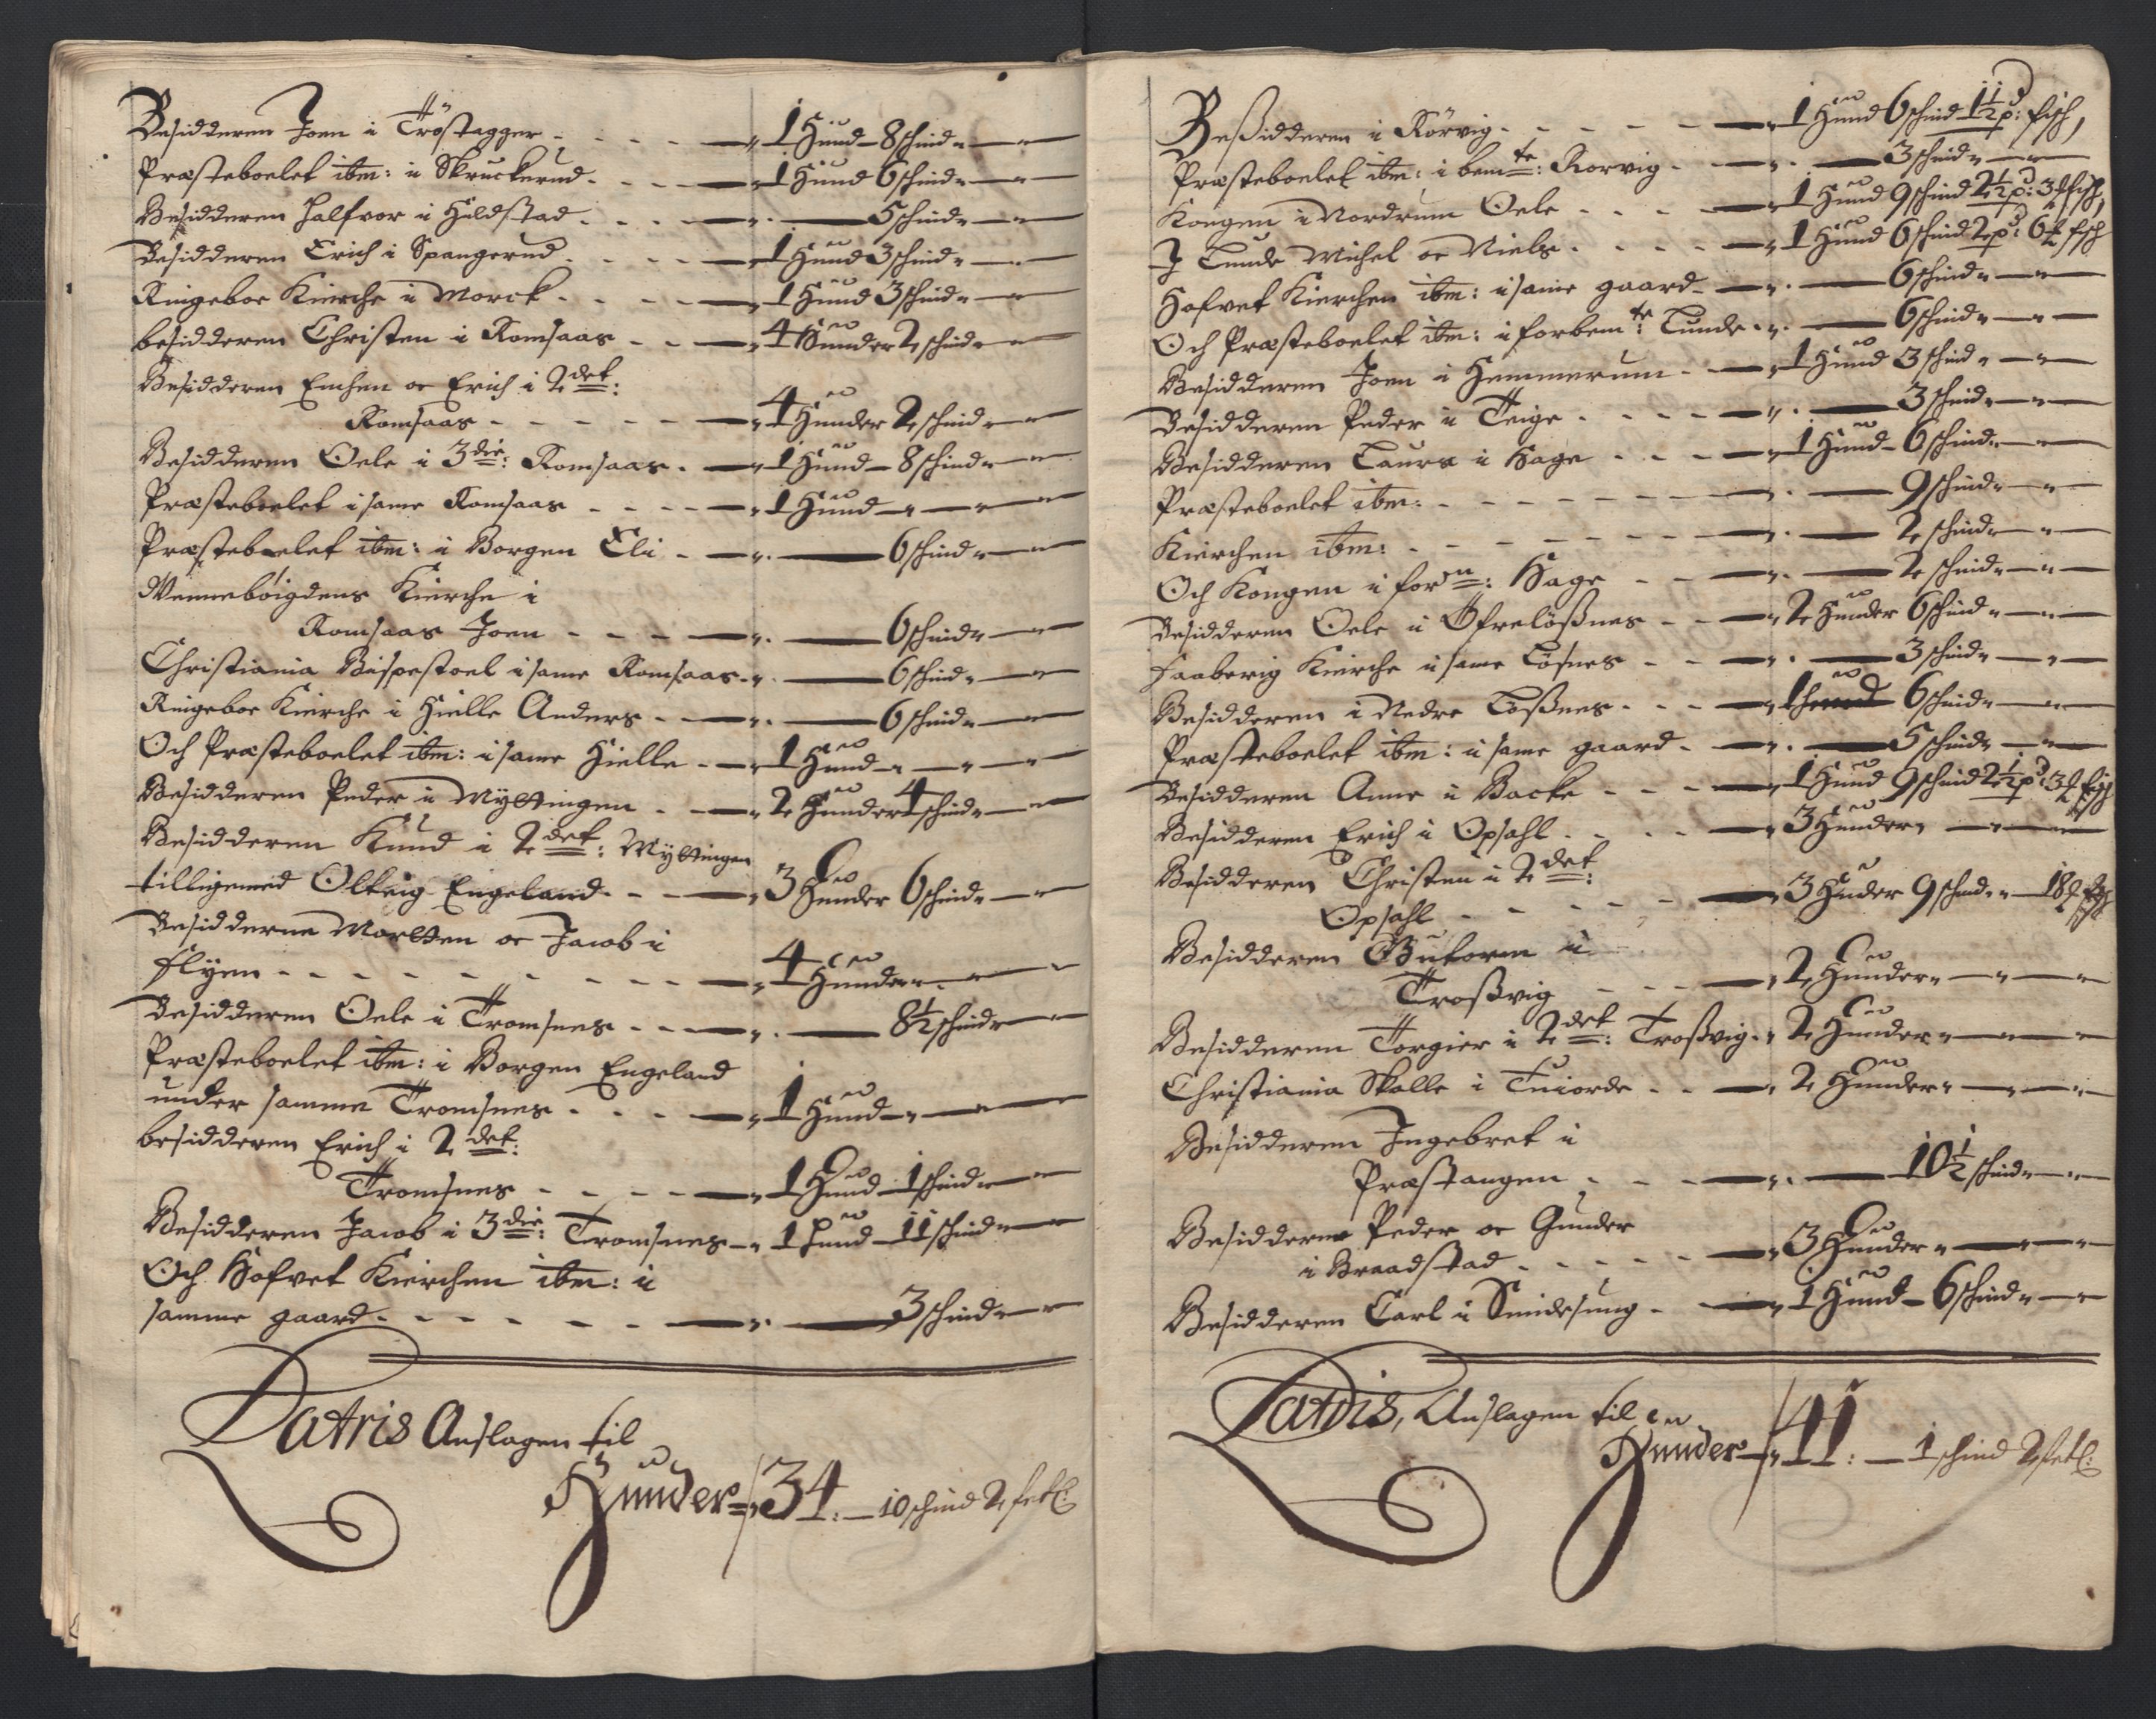 Besidderen Joen i Tröstagger - - - - 1 Hund - 8 schind
Præsteboelet ibm: i Skruckerud - - - 1 Hund 6 schind
Besidderen Halfvor i Hildstad - - - 5 schind
Besidderen Erich i Spangerud - - - 1 Hund 3 schind
Ringeboe Kierche i Morck - - - 1 Hund 3 schind
besidderen Christen i Romsaas - - 4 Hunder 2 schind
Besidderen Emhen oc Erich i 2det:
Romsaas - - - - - 4 Hunder 2 schind
Besidderen Oele i 3die: Romsaas - 1 Hund - 8 schind
Præsteboelet i same Romsaas - - - 1 Hund
Præsteboelet ibm: i Borgen Eli - - 6 schind
Wennebøigdens Kierche i
Romsaas Joen - - - 6 schind
Christiania Bispestoel i same Romsaas - 6 schind
Ringeboe Kierche i Hielle Anders - - 6 schind
Och Præsteboelet ibm: i same Hielle - 1 Hund
Besidderen Peder i Myttingen - - 2 Hunder 4 schind
Besidderen Knud i 2det: Myttingen
tilligemed Olteig Engeland - - 3 Hunder 6 schind
Besidderne Mortten oc Jacob i
Flyen - - - - - - - 4 Hunder
Besidderen Oele i Tromsnes - - - 8½ schind
Præsteboelet ibm: i Borgen Engeland
under samme Tromsnes - - - 1 Hund
besidderen Erich i 2det:
Tromsnes - - - - 1 Hund 1 schind
Besidderen Jacob i 3die: Tromsnes - 1 Hund - 11 schind
Och Hofvet Kierchen ibm: i
samme gaard - - - - - - 3 schind
Latris Anslagen til
Hunder - 34: - 10 schind 2 fetl:
Beßidderen i Rörvig - - - - - 1 Hund 6 schind 1½ pd: fisch,
Præsteboelet ibm: i bemte: Rorvig - - 3 schind
Kongen i Nordrum Oele - - - - 1 Hund 9 schind 2½ pd: 3 fisch,
I Lunde Michel oc Niels - - - - 1 Hund 6 schind 2 pd: 6 fisch
Hofvet Kierchen ibm: i same gaard - 6 schind
Och Præsteboelet ibm: i forbemte: Lunde - 6 schind
Besidderen Joen i Hemmerum - - 1 Hund 3 schind
Besidderen Peder i Teige - - - - 3 schind
Besidderen Laurs i Hage - - - 1 Hund - 6 schind
Præsteboelet ibm: - - - - - - 9 schind
Kierchen ibm: - - - - - - - 2 schind
Och Kongen i forn: Hage - - 2 schind
Besidderen Oele i Øfrelößnes - - 2 Hunder 6 schind
Faaberig Kierche i same Lösnes - - 3 schind
Besidderen i Nedre Lößnes - - - 1 Hund 6 schind
Præsteboelet ibm: i same gaard - 5 schind
Besidderen Anne i Backe - - - 1 Hund 9 schind 2½ pd: 3 fisch
Besidderen Erich i Opsahl - - - 3 Hunder
Besidderen Christen i 2det:
Opsahl - - - - - 3 Hunder 9 schind - 18 fisch
Besidderen Gutorm i
Troßvig - - - 2 Hunder
Besidderen Torgier i 2det: Troßvig - 2 Hunder
Christiania Skolle i Tuiorde - - 2 Hunder
Besidderen Ingebret i
Præstangen - - - 10½ schind
Besidderne Peder oc Gunder
i Braadstad - - - - - 3 Hunder
Besidderen Carl i Smidesung - - 1 Hund - 6 schind
Latris, Anslagen til
Hunder - 41: - 1 schind 2 fetl: